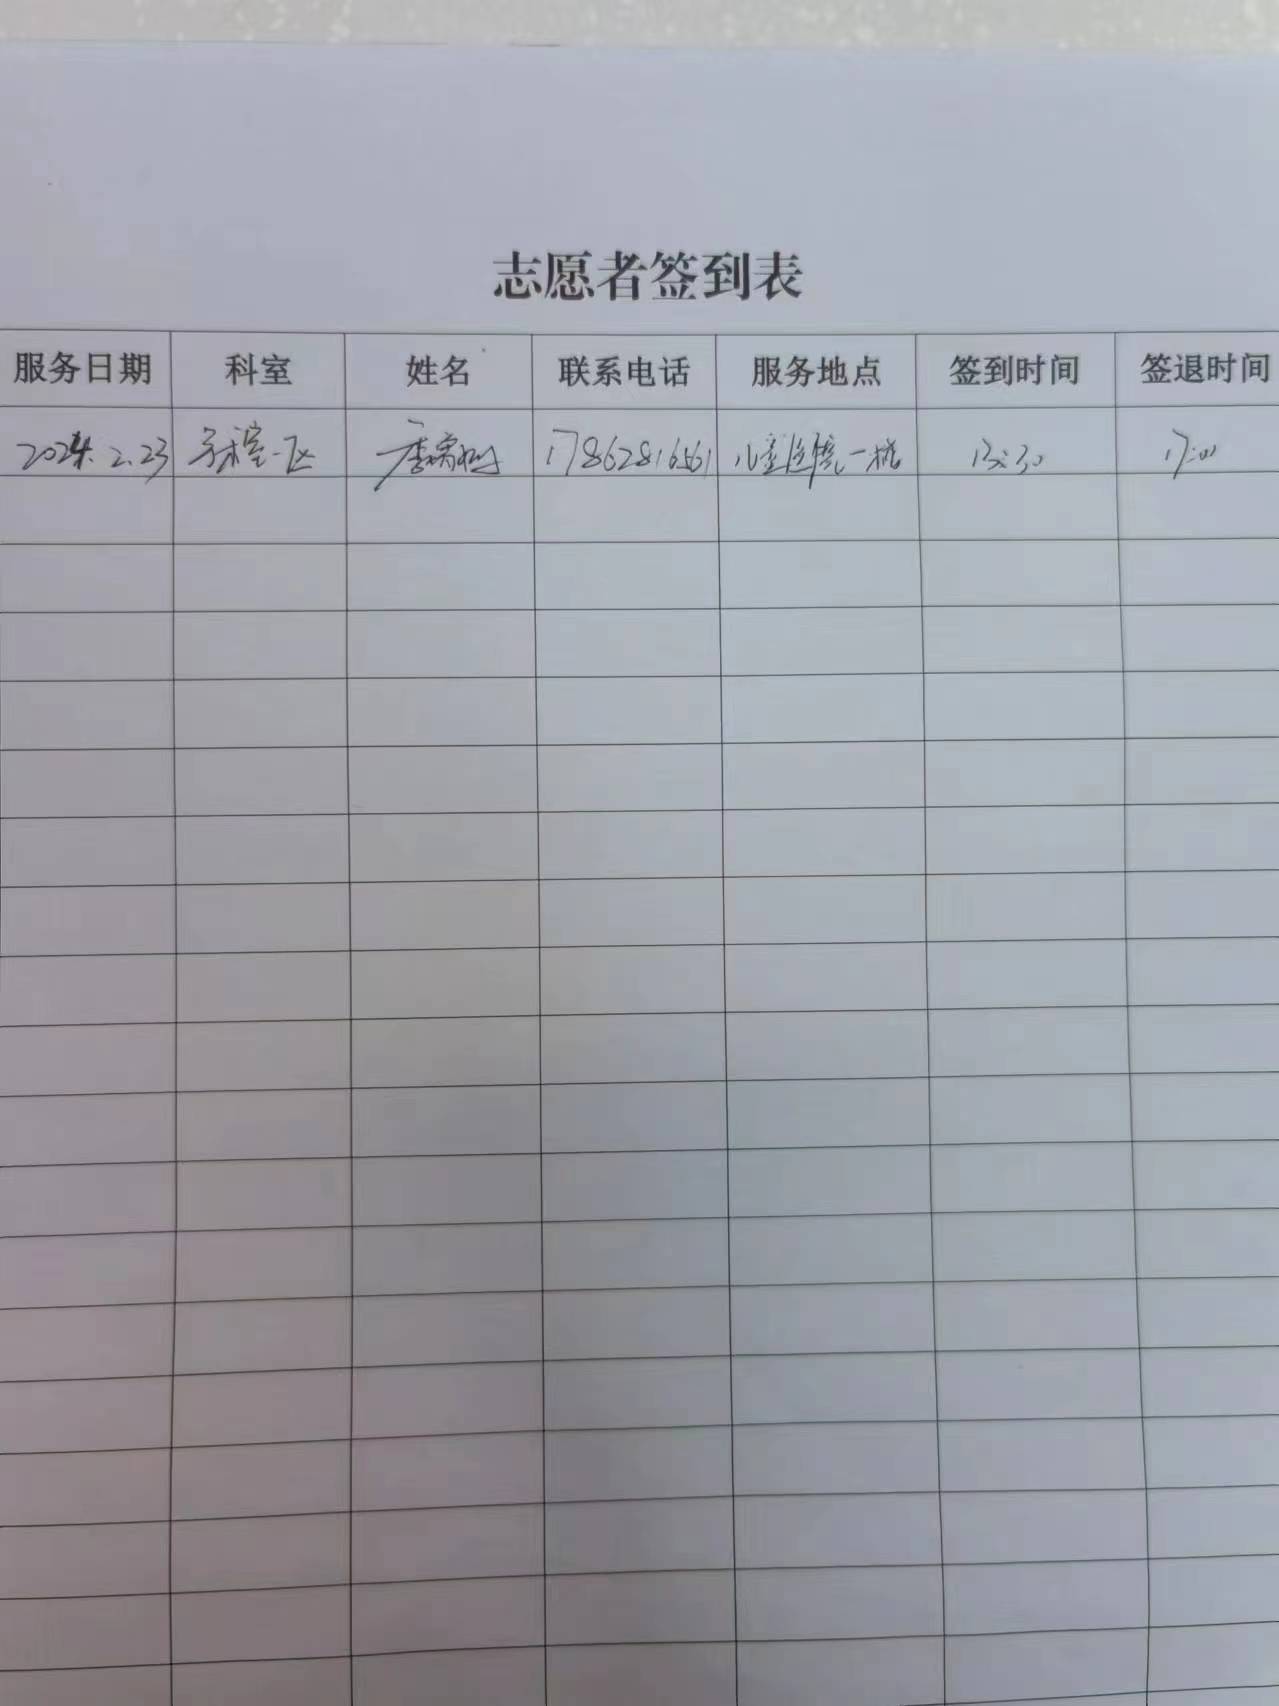 志愿者签到表
服务日期 科室 姓名 联系电话 服务地点 签到时间 签退时间
2024.2.23 室一区 季 17862816561 儿童医院一楼 13:30 17:00